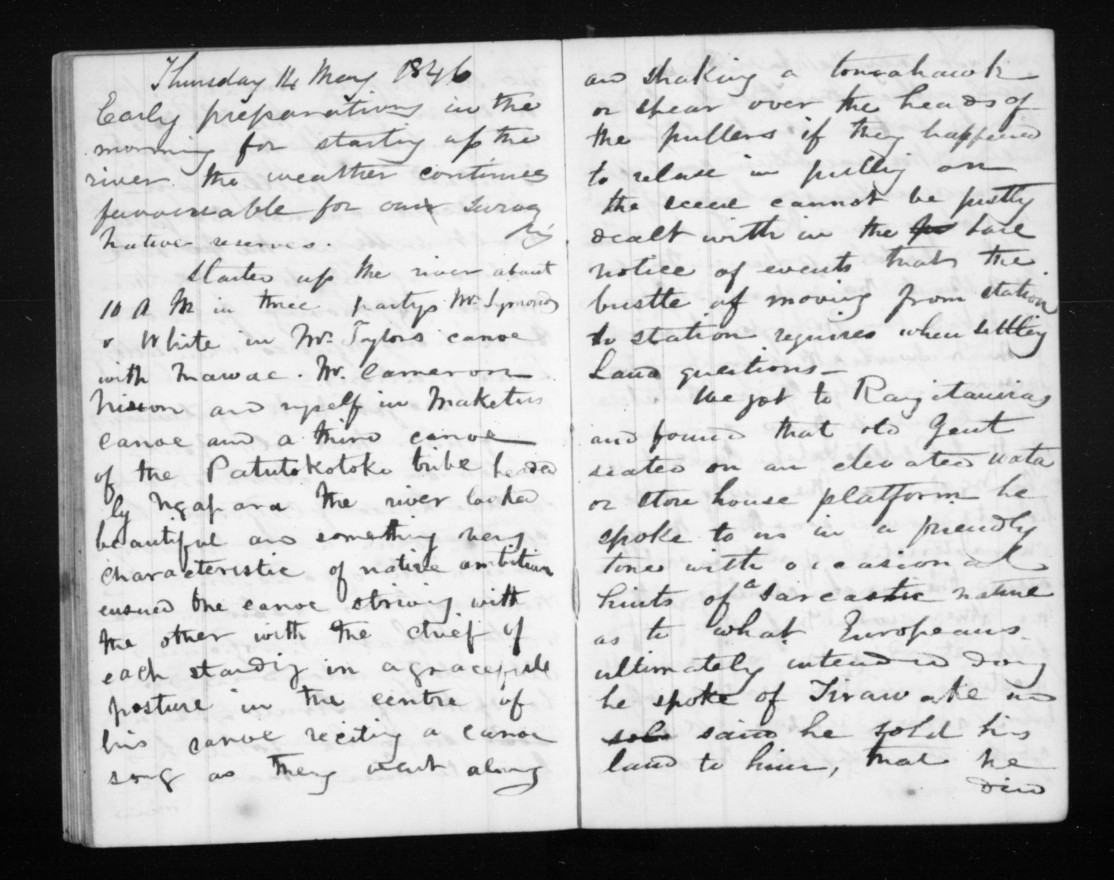 Thursday 14 May 1846
Early preparations in the
morning for starting up the
river. the weather continues
favourable for our
Native reserves.
Started up the river about
10 A M in three partys Mr. Symonds
& White in Mr. Taylors canoe
with Mawae. Mr. Cameron
Nixon and myself in Maketus
canoe and a third canoe
of the Patutokotoko tribe headed
by Ngapara the river looked
beautiful and something very
characteristic of native ambition
ensued one canoe striving with
the other with the chief of
each standing in a graceful
posture in the centre of
his canoe reciting a canoe
song as they went along
and shaking a tomahawk
or spear over the heads of
the pullers if they happened
to relase in pulling on
the scene cannot be justly
dealt with in the bare
notice of events that the
bustle of moving from station
to station requires when settling
Land questions _
We got to Rangitauiras
and found that old Gent
seated on an elevated wata
or store house platform he
spoke to us in a friendly
tone with occasional
hints of a Sarcastic nature
as to what Europeans
ultimately intended doing
he spoke of Tirawake and
said he sold his
land to him, that he
did